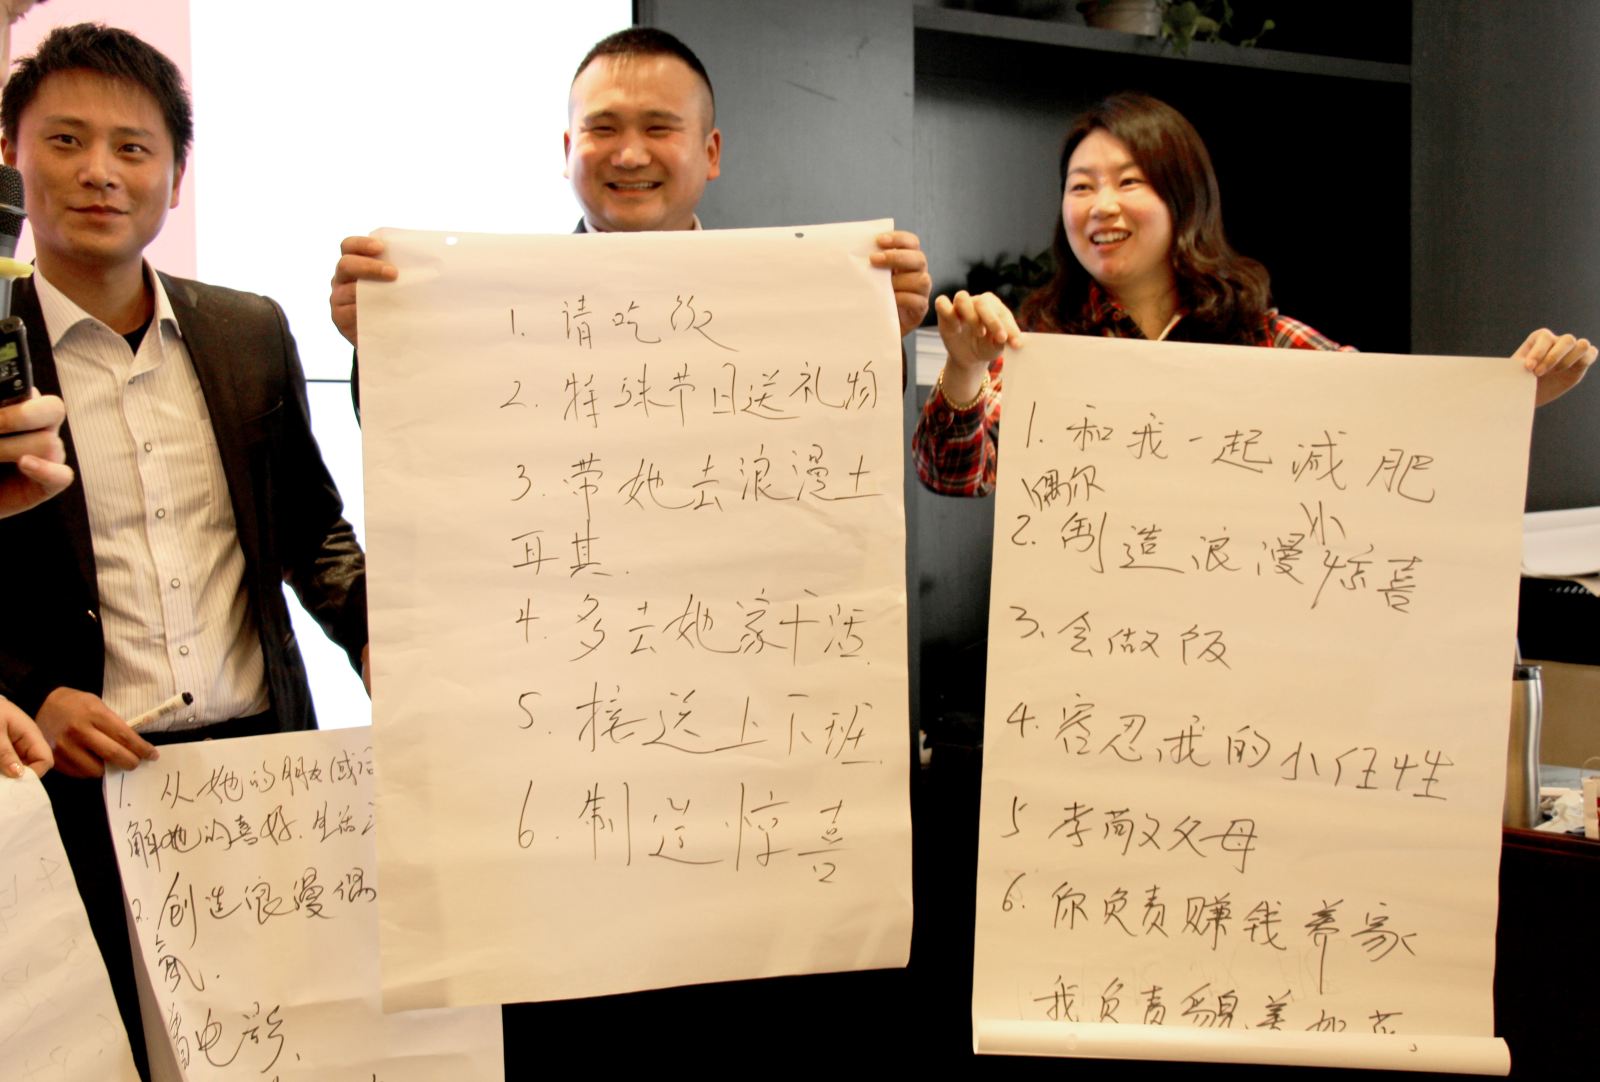 1. 请吃饭
2. 特殊节日送礼物
3. 带她去浪漫土
耳其.
4. 多去她家干活.
5. 接送上下班.
6. 制造惊喜
1. 和我一起减肥
偶尔
2. 制造浪漫小惊喜
3. 会做饭
4. 容忍我的小任性
5 孝敬父母
6. 你负责赚钱养家
我负责貌美如花。
1. 从她的朋友或
解她的喜好.生活
2. 创造浪漫偶
氛.
看电影.